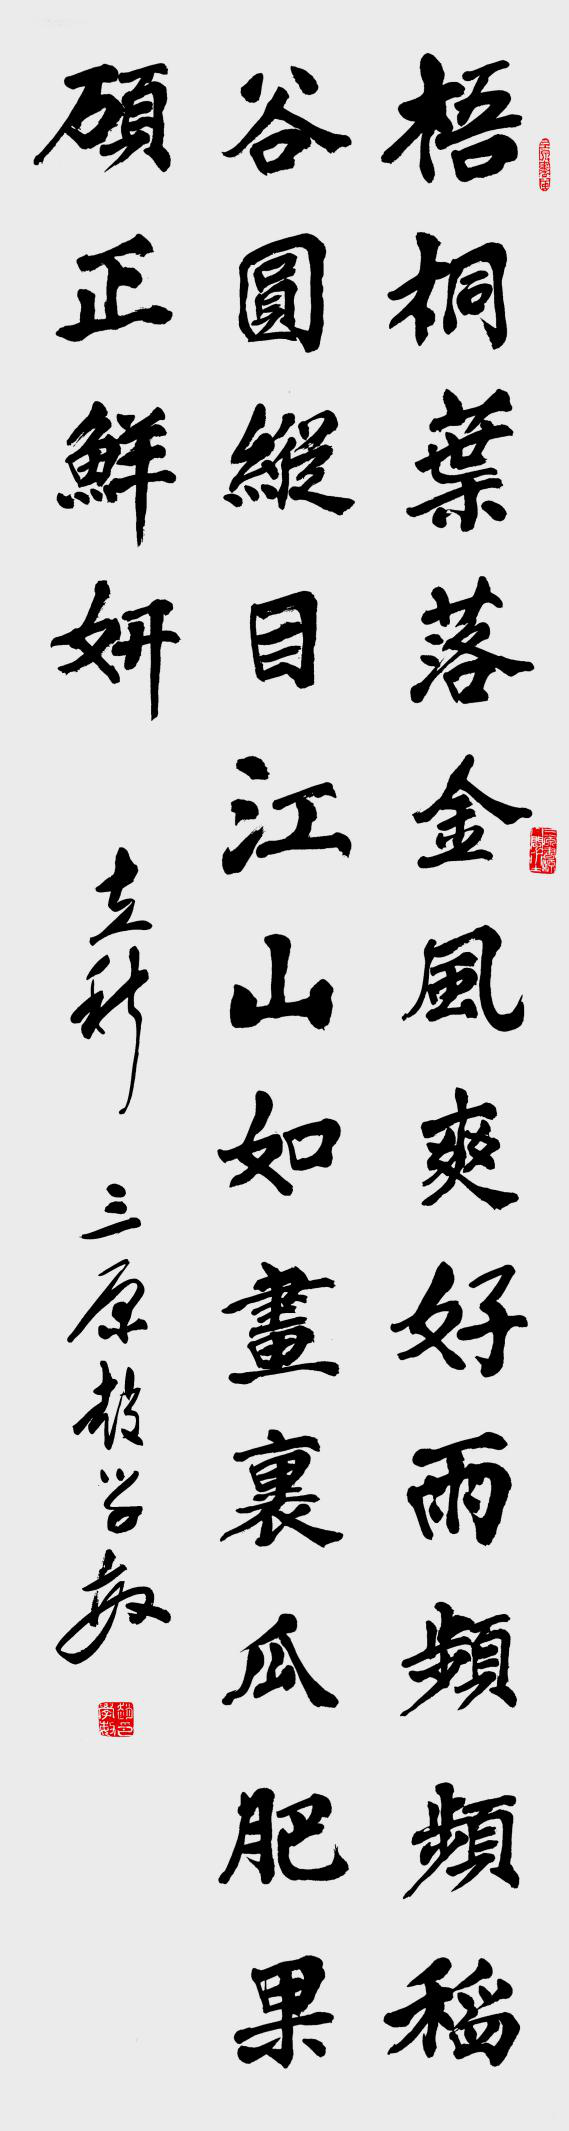 梧桐葉落金風爽好雨頻頻稻
谷圓縱目江山如畫裏瓜肥果
碩正鮮妍
立秋
三原赵学敏